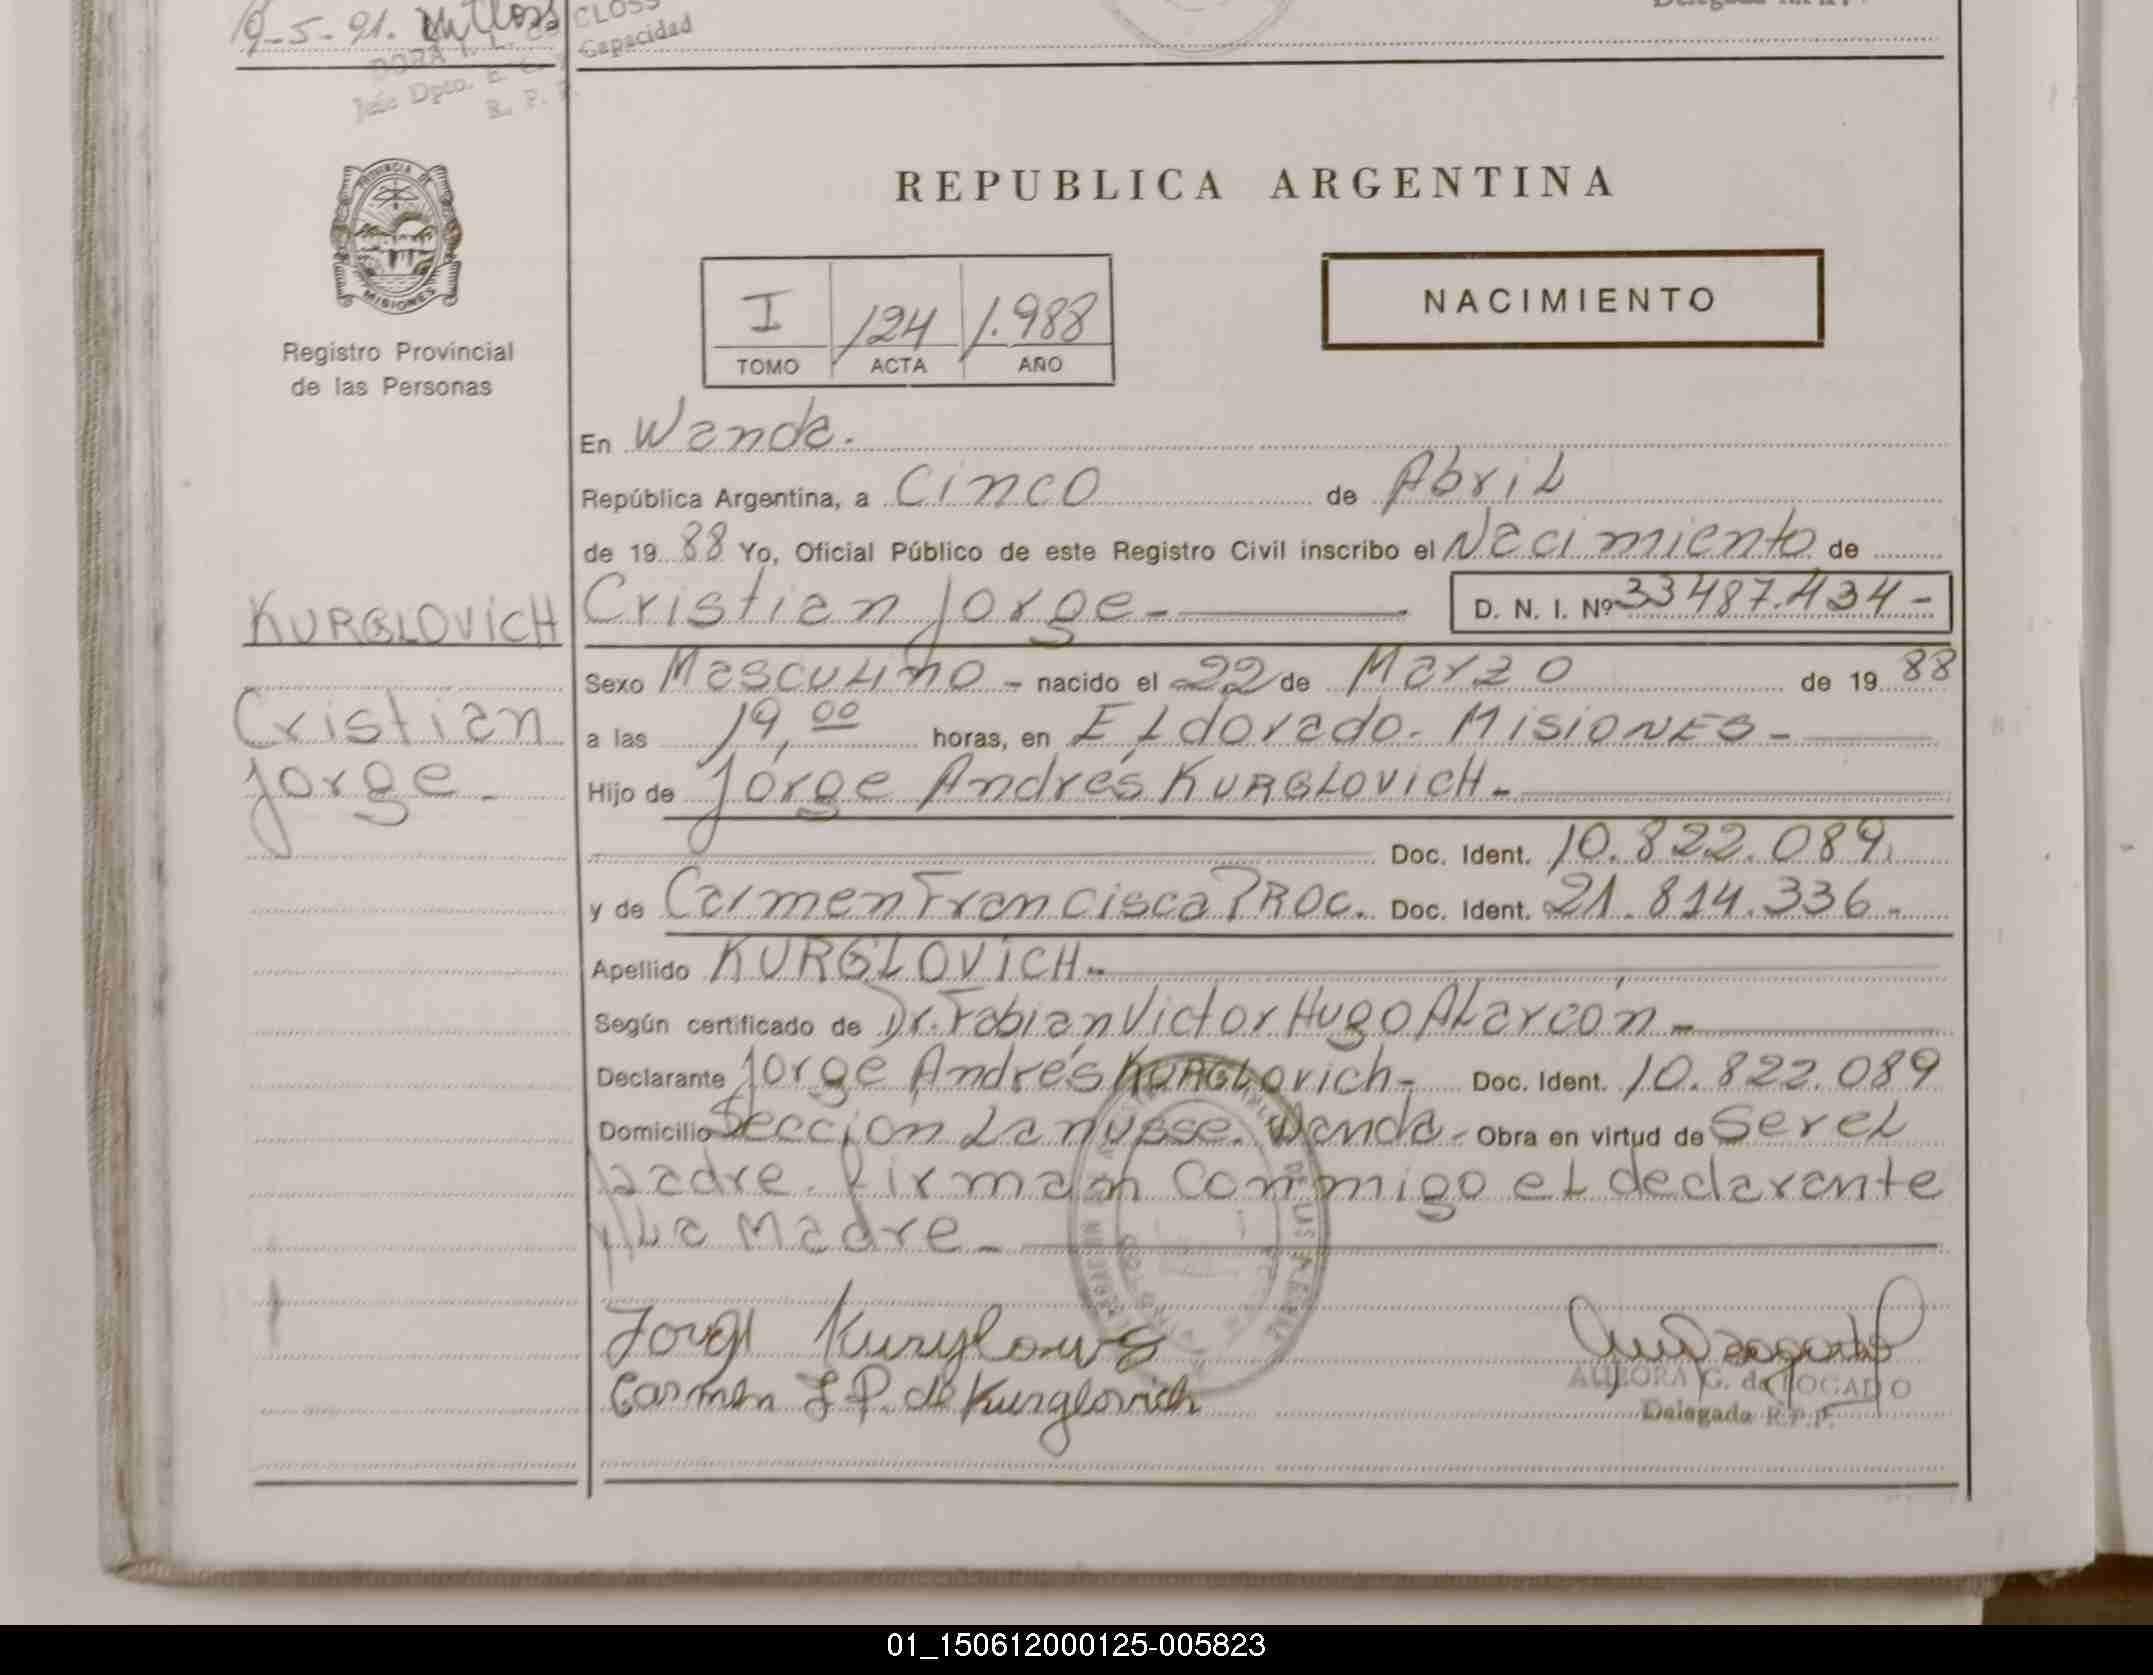 19-5-91.
CLOSS
DORA I. L. de
Capacidad
Jefe Dpto. E. C. y
R. P. P.
PROVINCIA DE
MISIONES
Registro Provincial
de las Personas
REPUBLICA ARGENTINA
I /124 /1.988
TOMO ACTA AÑO
NACIMIENTO
En Wanda.
República Argentina, a Cinco de Abril
de 19 88 Yo, Oficial Público de este Registro Civil inscribo el Nacimiento de
KURGLOVICH Cristian Jorge- D. N. I. Nº 33487.434-
Sexo Masculino - nacido el 22 de Marzo de 19 88
Cristian a las 19,00 horas, en ELdorado. MISIONES-
Jorge.- Hijo de Jorge Andrés KURGLOVICH-
Doc. Ident. 10.822.089.
y de Carmen Francisca PROC. Doc. Ident. 21.814.336-
Apellido KURGLOVICH-
Según certificado de Dr. Fabian Victor Hugo ALarcón-
Declarante Jorge Andrés KURGLOVICH- Doc. Ident. 10.822.089
Domicilio Seccion Lanusse. Wanda- Obra en virtud de Ser eL
padre. firman conmigo eL declarante
y La Madre-
Jorge
Carmen F P. de Kurglovich
AURORA G. de POCADO
Delegada R.P.P.
01_150612000125-005823